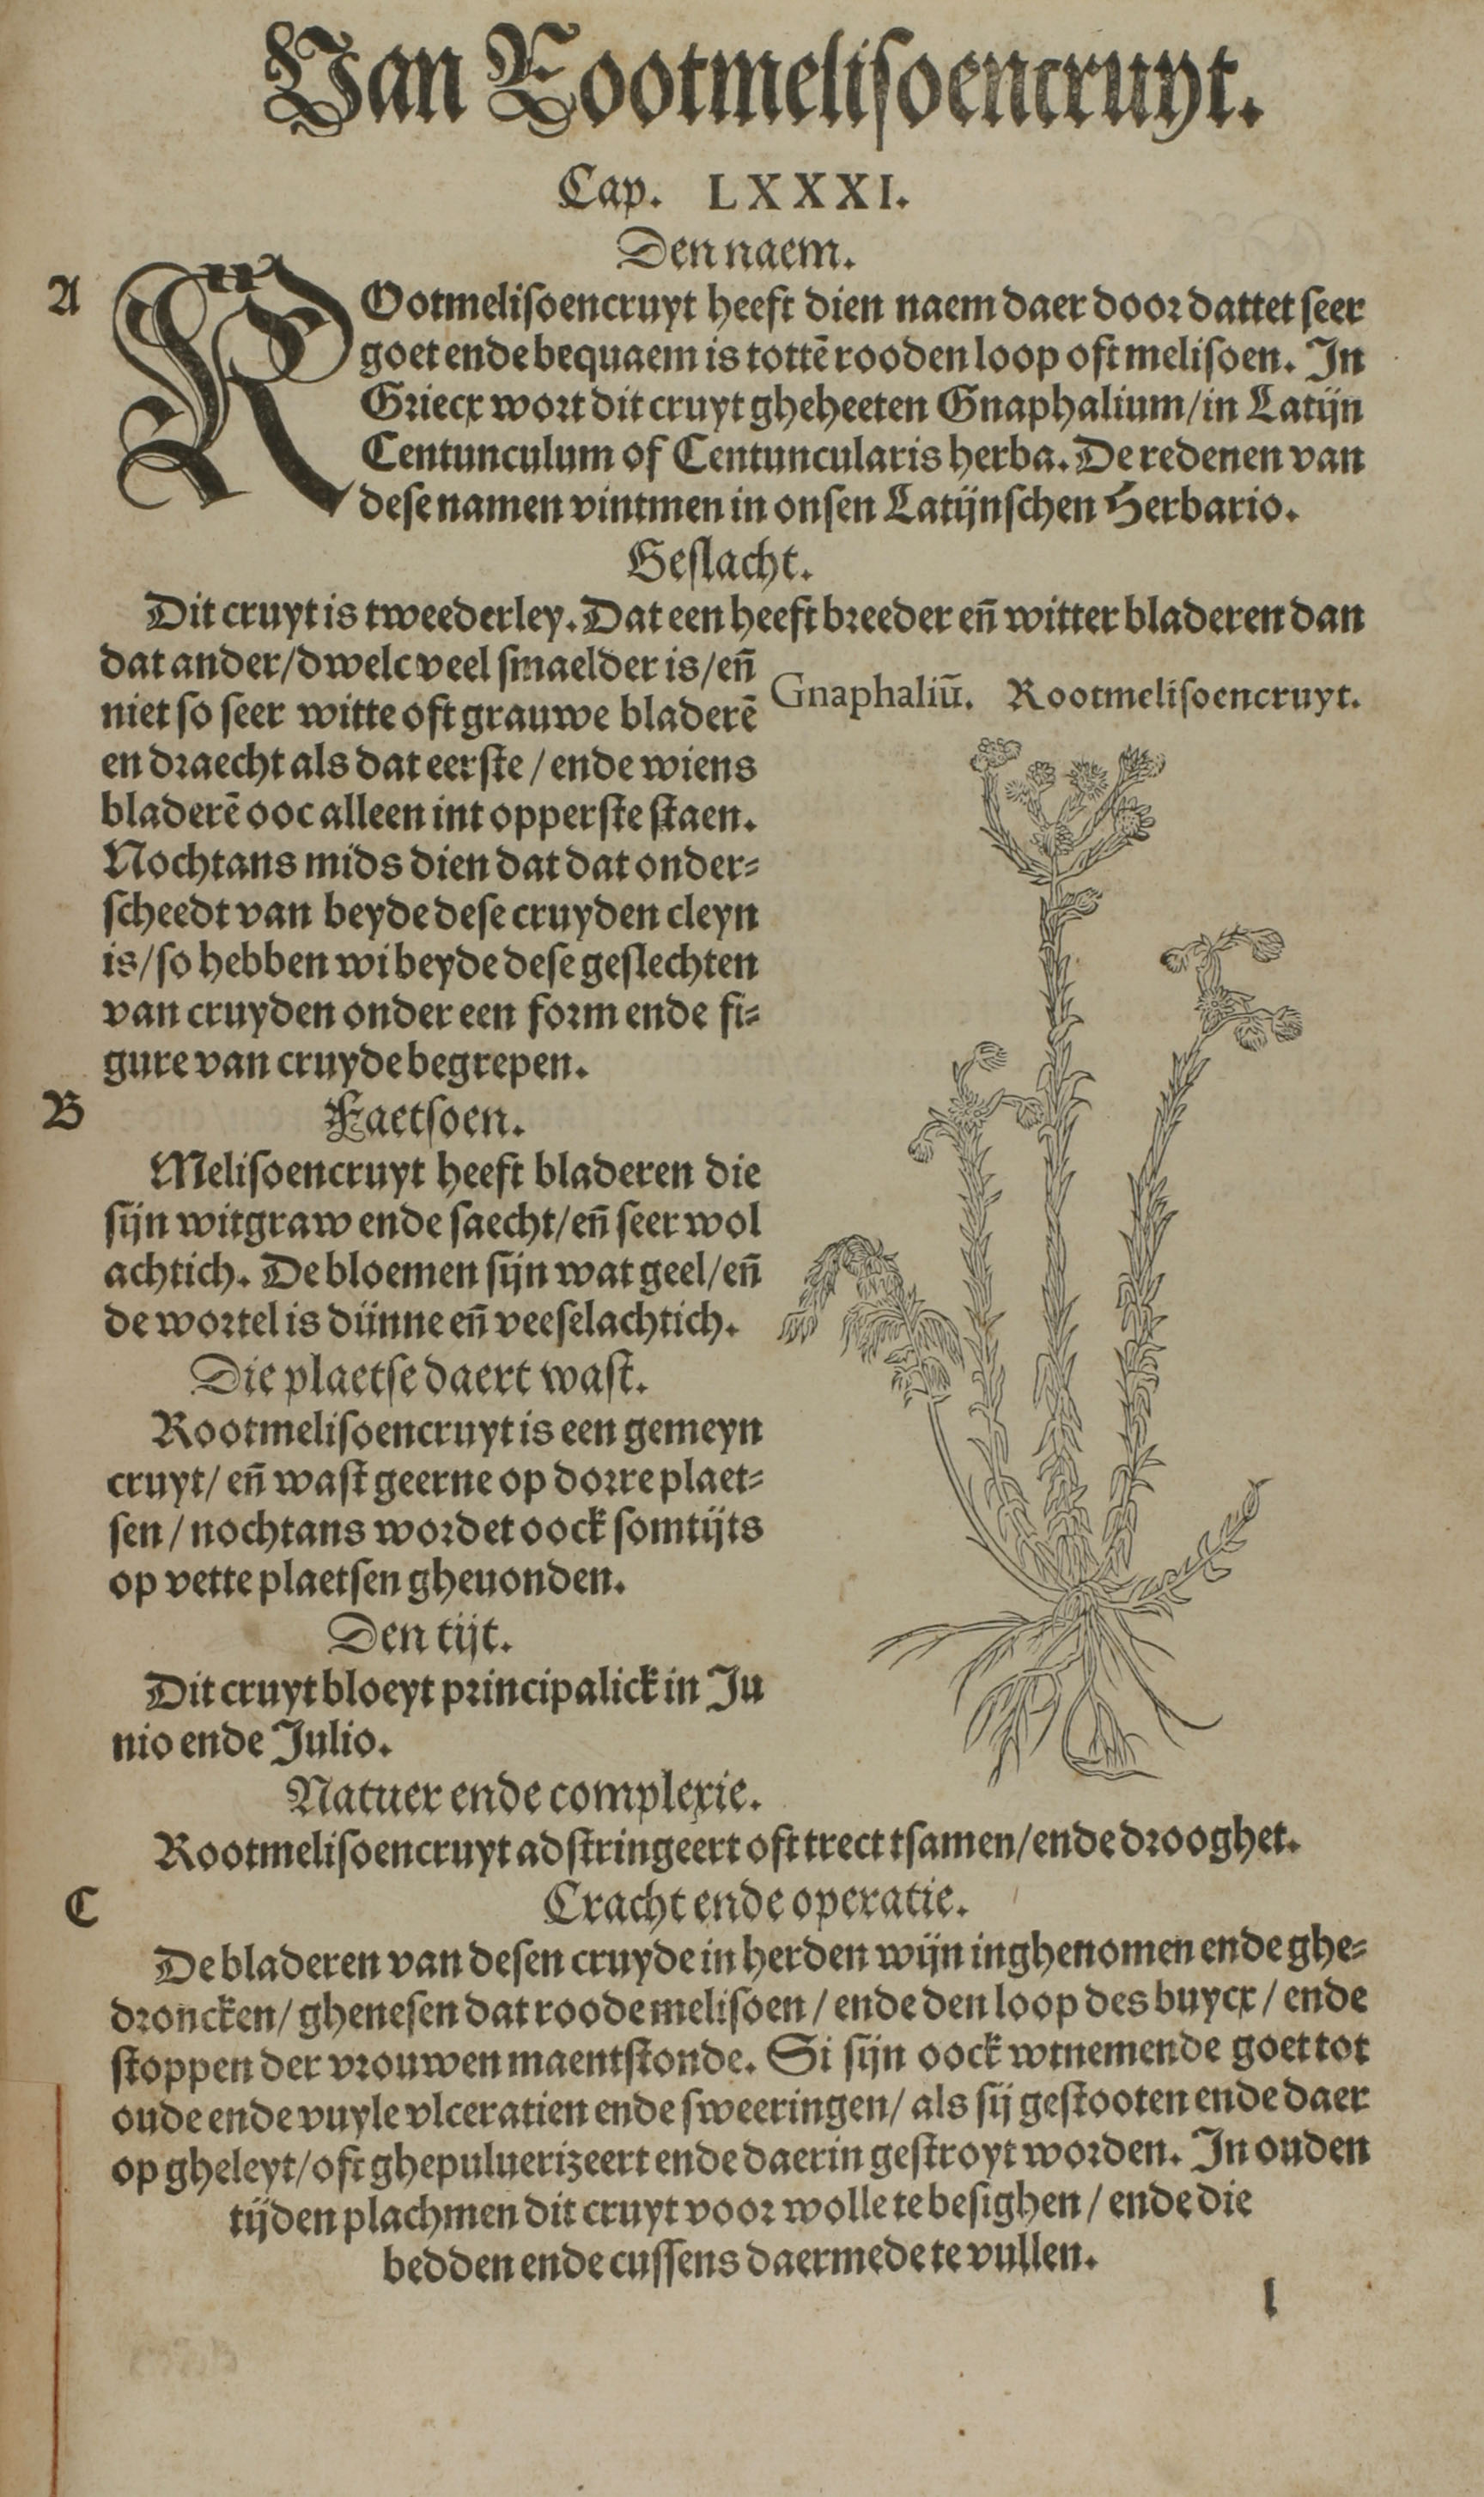 Van Rootmelisoencruyt.
Cap. LXXXI.
Den naem.
A
ROotmelisoencruyt heeft dien naem daer door dattet seer
goet ende bequaem is tottē rooden loop oft melisoen. In
Griecx wort dit cruyt gheheeten Gnaphalium/in Latijn
Centunculum of Centuncularis herba. De redenen van
dese namen vintmen in onsen Latijnschen Herbario.
Geslacht.
Dit cruyt is tweederley. Dat een heeft breeder eñ witter bladeren dan
dat ander/dwelc veel smaelder is/eñ
niet so seer witte oft grauwe bladerē
en draecht als dat eerste/ende wiens
bladerē ooc alleen int opperste staen.
Nochtans mids dien dat dat onder-
scheedt van beyde dese cruyden cleyn
is/so hebben wi beyde dese geslechten
van cruyden onder een form ende fi-
gure van cruyde begrepen.
Gnaphaliū. Rootmelisoencruyt.
B
Faetsoen.
Melisoencruyt heeft bladeren die
sijn witgraw ende saecht/eñ seer wol
achtich. De bloemen sijn wat geel/eñ
de wortel is dünne eñ veeselachtich.
Die plaetse daert wast.
Rootmelisoencruyt is een gemeyn
cruyt/ eñ wast geerne op dorre plaet-
sen/nochtans wordet oock somtijts
op vette plaetsen gheuonden.
Den tijt.
Dit cruyt bloeyt principalick in Ju
nio ende Julio.
Natuer ende complexie.
Rootmelisoencruyt adstringeert oft trect tsamen/ende drooghet.
C
Cracht ende operatie.
De bladeren van desen cruyde in herden wijn inghenomen ende ghe-
droncken/ ghenesen dat roode melisoen/ ende den loop des buycx/ ende
stoppen der vrouwen maentstonde. Si sijn oock wtnemende goet tot
oude ende vuyle vlceratien ende sweeringen/ als sij gestooten ende daer
op gheleyt/oft ghepuluerizeert ende daerin gestroyt worden. In ouden
tijden plachmen dit cruyt voor wolle te besighen/ ende die
bedden ende cussens daermede te vullen.
l